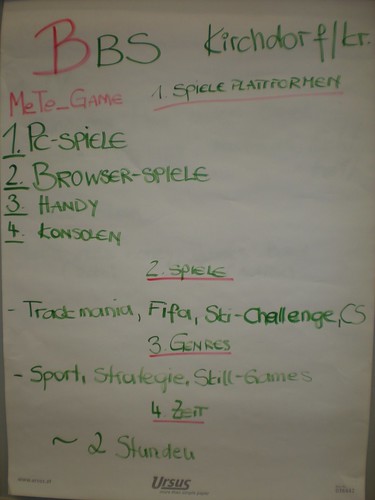 BBS Kirchdorf/Kr.
MeTe_Game 1. SPIELEPLATTFORMEN
1. PC-SPIELE
2. BROWSER-SPIELE
3. HANDY
4. KONSOLEN
2. SPIELE
- Trackmania, Fifa, Ski-Challenge, CS
3. GENRES
- Sport, Strategie, Skill-Games
4. ZEIT
~ 2 Stunden
Ursus